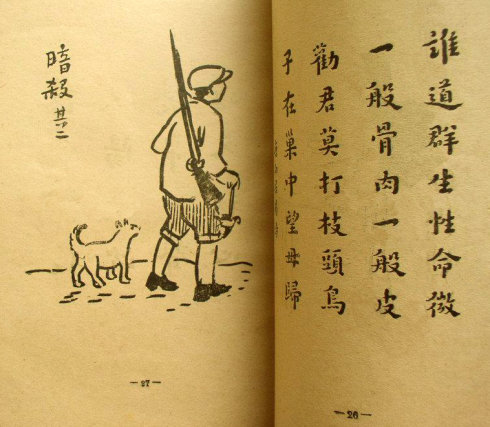 誰道群生性命微
一般骨肉一般皮
勸君莫打枝頭鳥
子在巢中望母歸
—26—
暗殺 其二
—27—